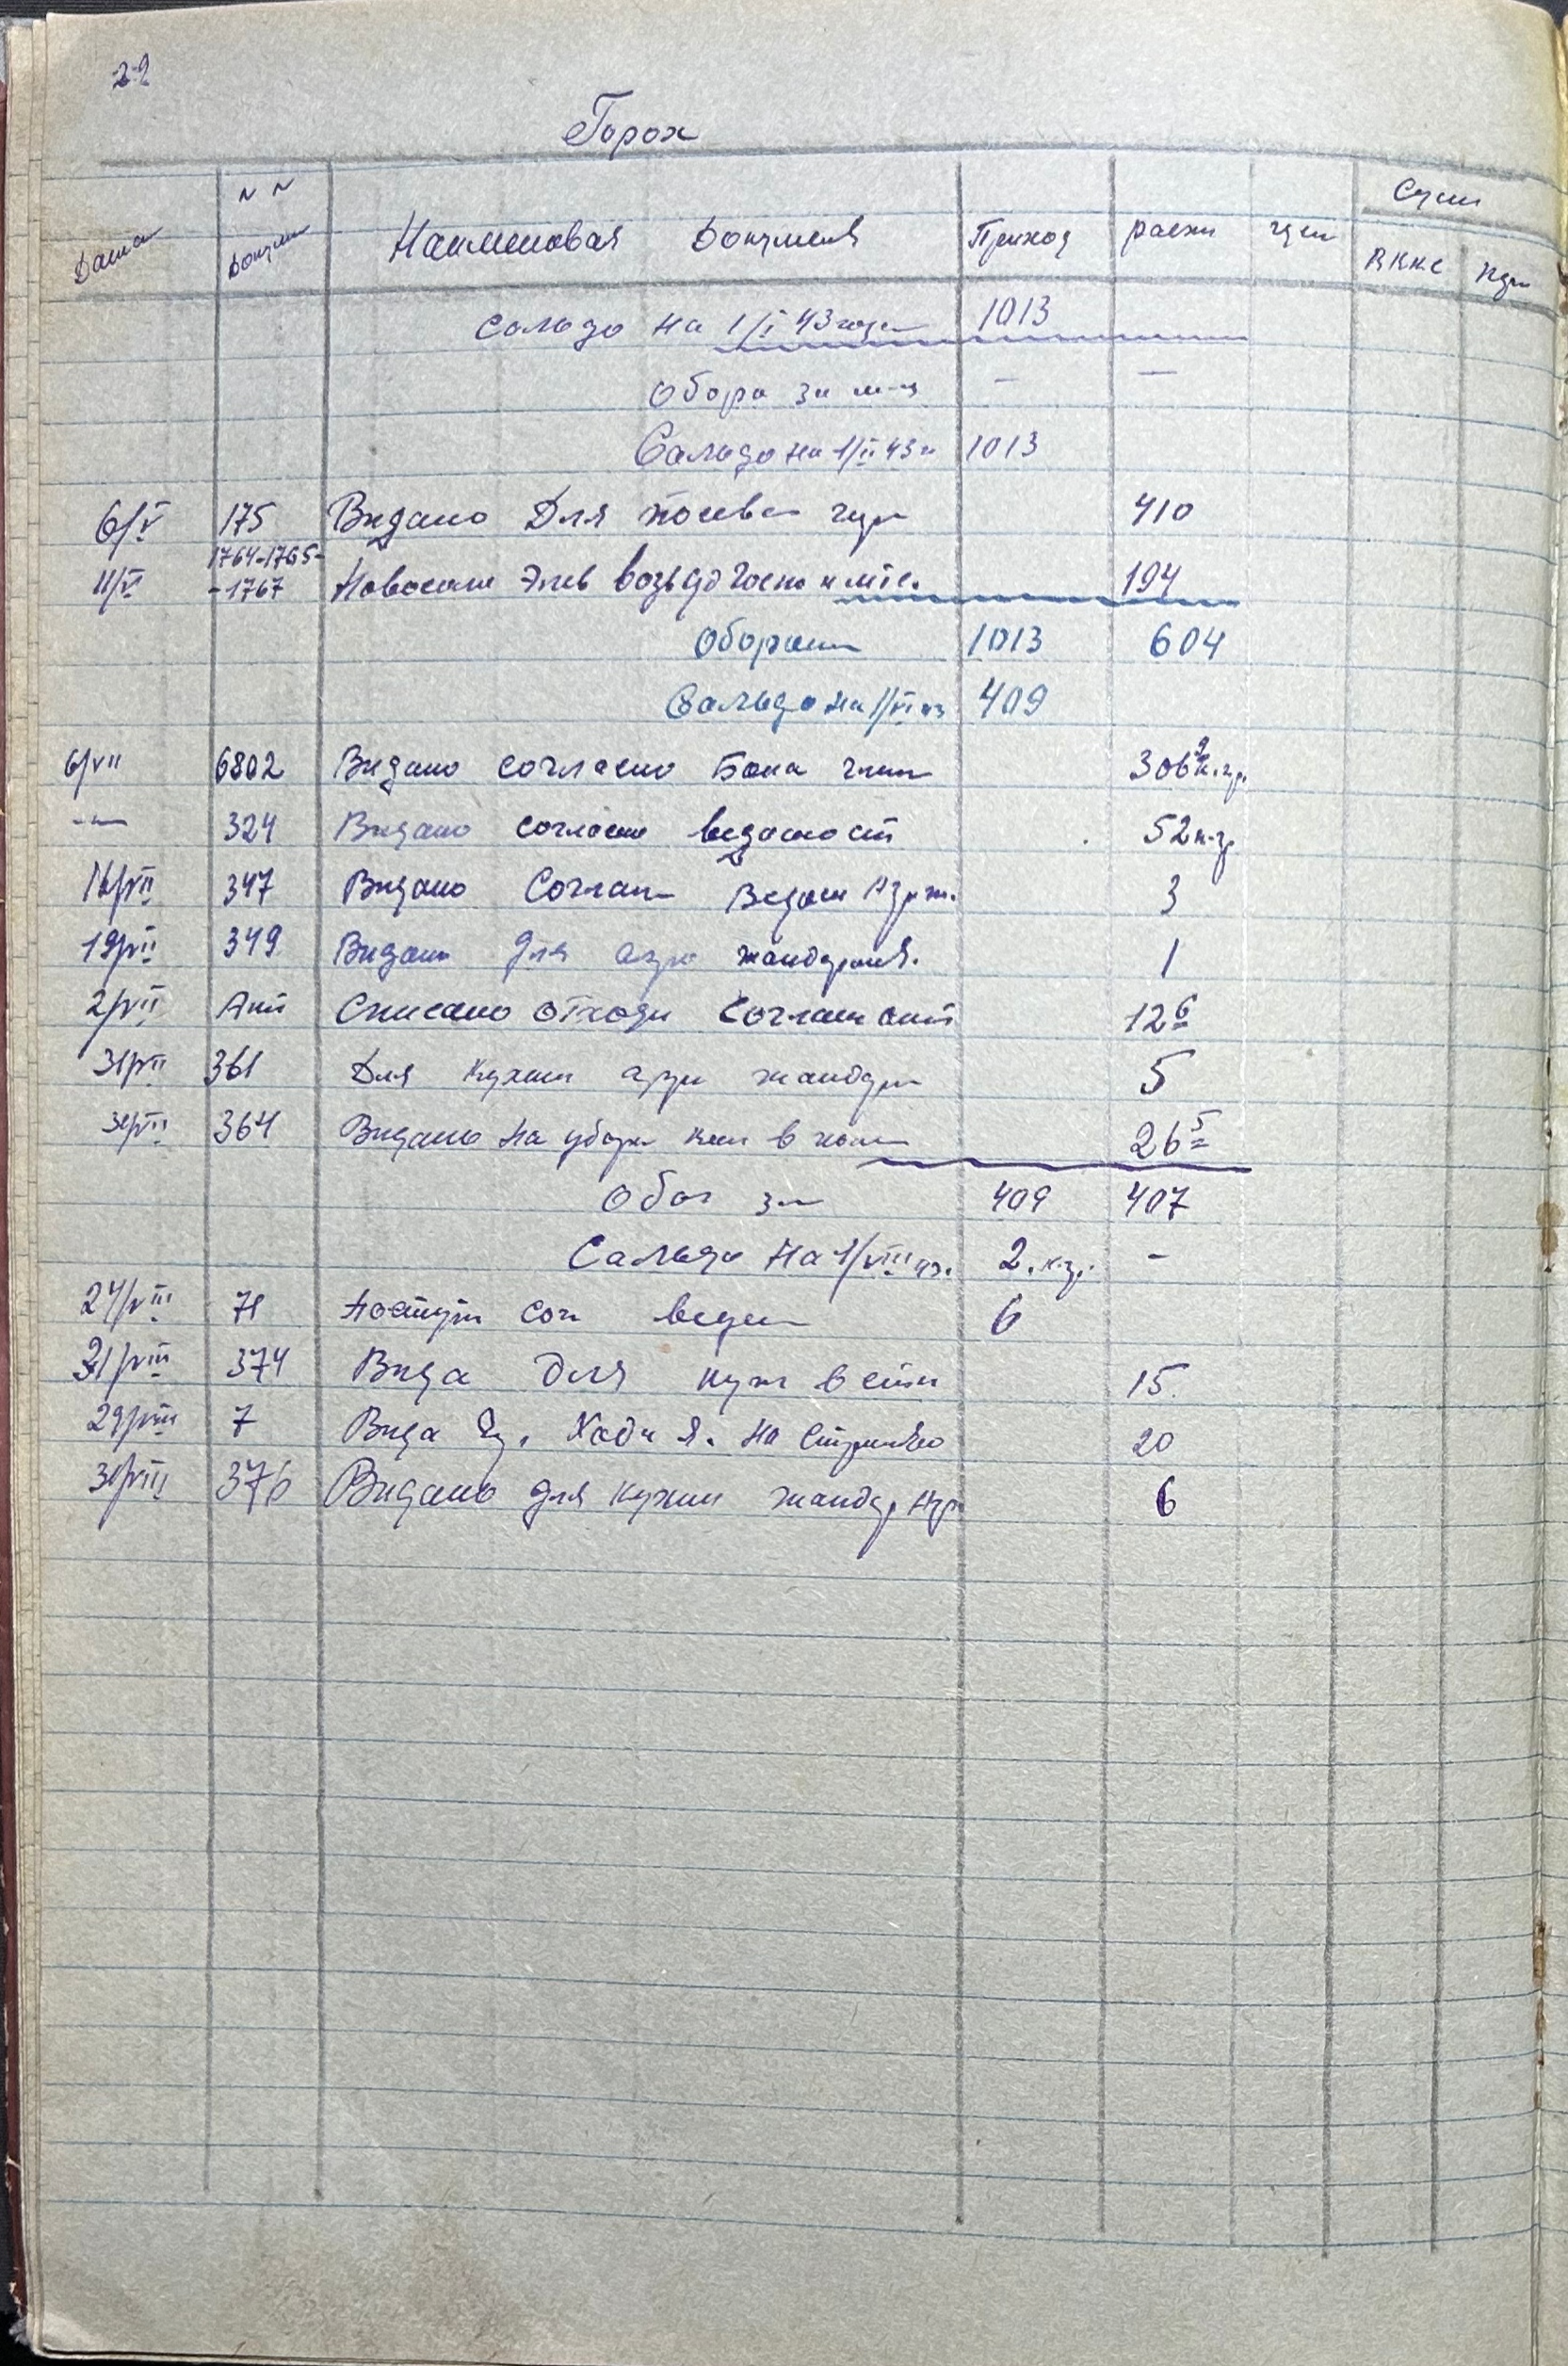 29
Горох
Дата № № Докум Наименовая Документа Приход расхи цен Сум
Сальдо на 1/I 43 года 1013
Обора за м-ц — —
Сальдо на 1/II 43 г 1013
6/V 175 Видано Для посева 410
1764-1765-
11/V -1767 194
Обороти 1013 604
Сальдо на 1/VI 409
6/VII 6802 Видано согласно Бона 306 9 к.гр.
-"- 324 Видано согласно ведомост 52 к.гр
16/VII 347 Видано Соглас Ведом 3
19/VII 349 Видано для агро жандармя. 1
2/VII Акт Списано отходи Согласн акт 12 6
31/VII 361 Для кухни жандар 5
31/VII 364 Видано на убор 26 5
Обог за 409 407
Сальдо на 1/VIII 2. к.гр. -
24/VIII 71 Поступ сог ведом 6
31/VIII 374 Вида для кухн в степ 15
29/VIII 7 Вида на 20
31/VIII 376 Видано для кухни жандар 6